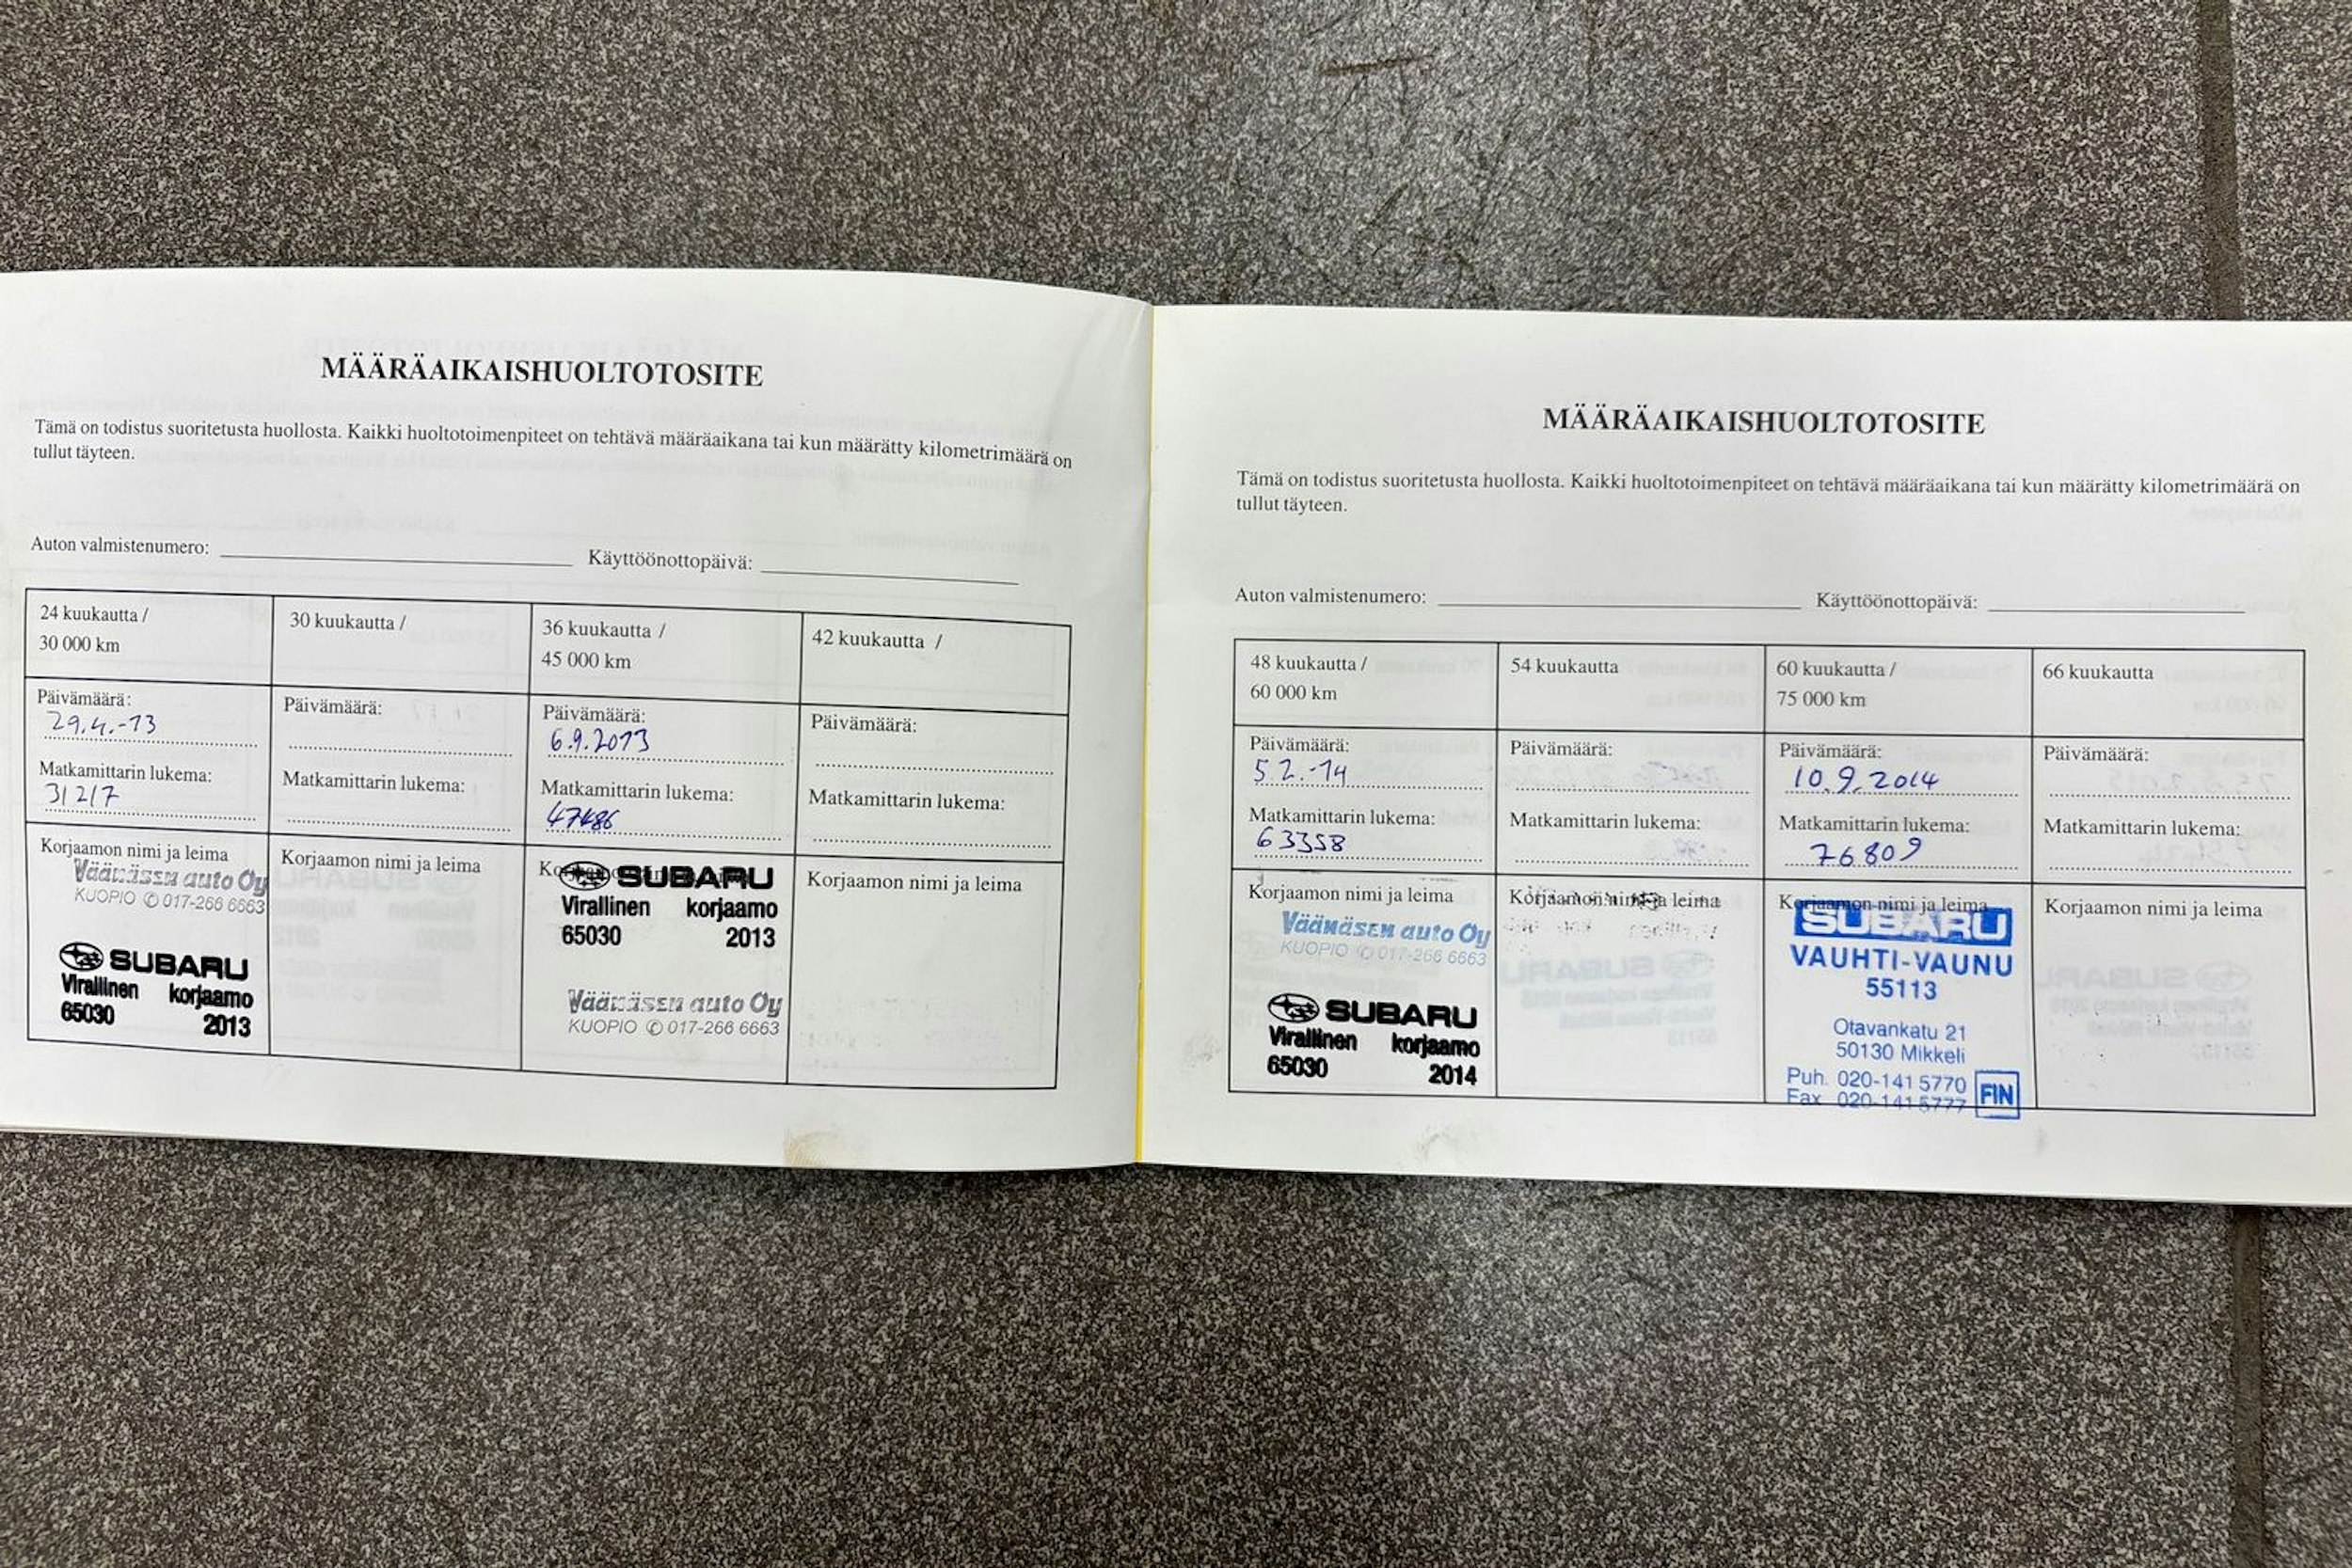 MÄÄRÄAIKAISHUOLTOTOSITE
Tämä on todistus suoritetusta huollosta. Kaikki huoltotoimenpiteet on tehtävä määräaikana tai kun määrätty kilometrimäärä on
tullut täyteen.
Auton valmistenumero: Käyttöönottopäivä:
24 kuukautta /
30 000 km
Päivämäärä:
29.4.-13
Matkamittarin lukema:
31217
Korjaamon nimi ja leima
Väänäsen auto Oy
KUOPIO ✆ 017-266 6663
SUBARU
Virallinen korjaamo
65030 2013
30 kuukautta /
Päivämäärä:
Matkamittarin lukema:
Korjaamon nimi ja leima
36 kuukautta /
45 000 km
Päivämäärä:
6.9.2013
Matkamittarin lukema:
47486
Korjaamon nimi ja leima
SUBARU
Virallinen korjaamo
65030 2013
Väänäsen auto Oy
KUOPIO ✆ 017-266 6663
42 kuukautta /
Päivämäärä:
Matkamittarin lukema:
Korjaamon nimi ja leima
MÄÄRÄAIKAISHUOLTOTOSITE
Tämä on todistus suoritetusta huollosta. Kaikki huoltotoimenpiteet on tehtävä määräaikana tai kun määrätty kilometrimäärä on
tullut täyteen.
Auton valmistenumero: Käyttöönottopäivä:
48 kuukautta /
60 000 km
Päivämäärä:
5.2.-14
Matkamittarin lukema:
63358
Korjaamon nimi ja leima
Väänäsen auto Oy
KUOPIO ✆ 017-266 6663
SUBARU
Virallinen korjaamo
65030 2014
54 kuukautta
Päivämäärä:
Matkamittarin lukema:
Korjaamon nimi ja leima
60 kuukautta /
75 000 km
Päivämäärä:
10.9.2014
Matkamittarin lukema:
76809
Korjaamon nimi ja leima
SUBARU
VAUHTI-VAUNU
55113
Otavankatu 21
50130 Mikkeli
Puh. 020-141 5770
Fax 020-141 5777
FIN
66 kuukautta
Päivämäärä:
Matkamittarin lukema:
Korjaamon nimi ja leima